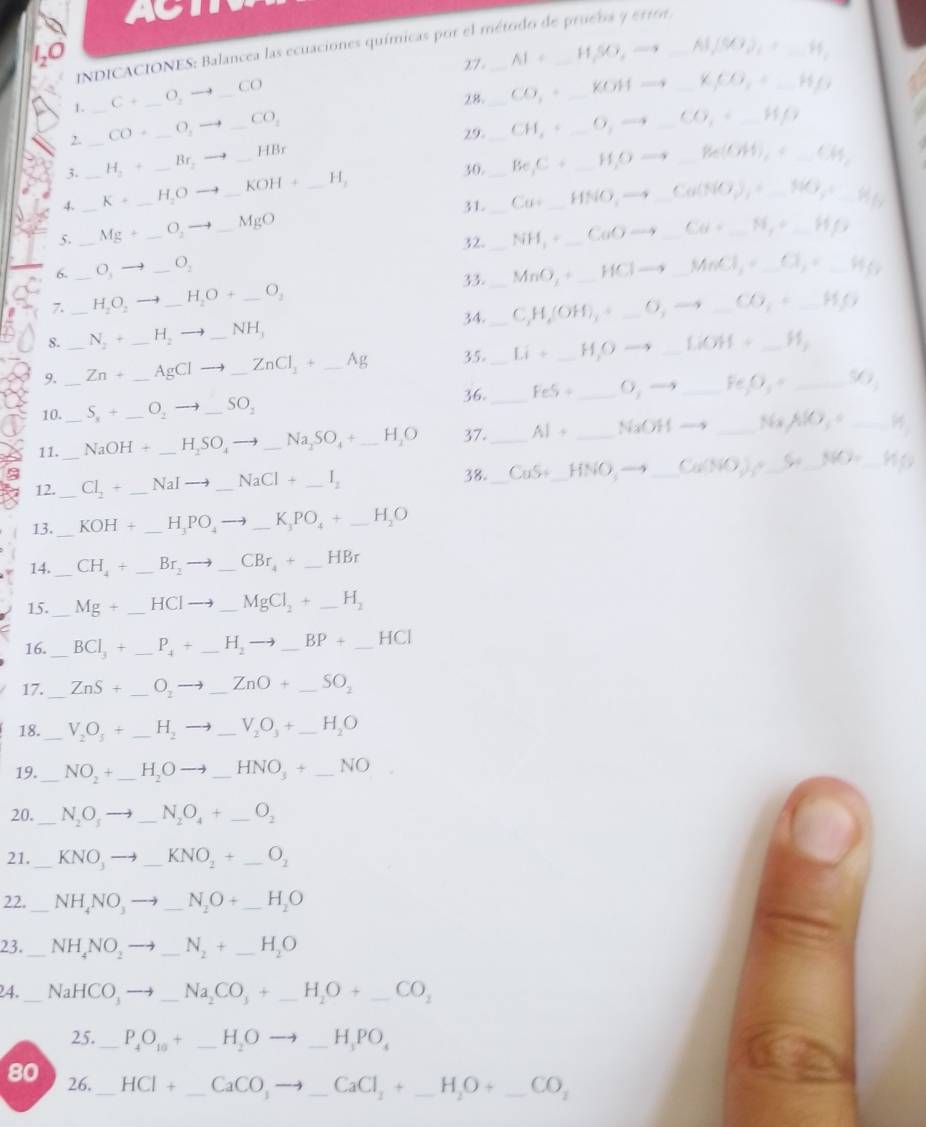 I₂O
INDICACIONES: Balancea las ecuaciones químicas por el método de prueba y error.
1. __ C + __ O₂ → __ CO
2. __ CO + __ O₂ → __ CO₂
3. __ H₂ + __ Br₂ → __ HBr
4. __ K + __ H₂O → __ KOH + __ H₂
5. __ Mg + __ O₂ → __ MgO
6. __ O₃ → __ O₂
7. __ H₂O₂ → __ H₂O + __ O₂
8. __ N₂ + __ H₂ → __ NH₃
9. __ Zn + __ AgCl → __ ZnCl₂ + __ Ag
10. __ S₈ + __ O₂ → __ SO₂
11. __ NaOH + __ H₂SO₄ → __ Na₂SO₄ + __ H₂O
12. __ Cl₂ + __ NaI → __ NaCl + __ I₂
13. __ KOH + __ H₃PO₄ → __ K₃PO₄ + __ H₂O
14. __ CH₄ + __ Br₂ → __ CBr₄ + __ HBr
15. __ Mg + __ HCl → __ MgCl₂ + __ H₂
16. __ BCl₃ + __ P₄ + __ H₂ → __ BP + __ HCl
17. __ ZnS + __ O₂ → __ ZnO + __ SO₂
18. __ V₂O₅ + __ H₂ → __ V₂O₃ + __ H₂O
19. __ NO₂ + __ H₂O → __ HNO₃ + __ NO
20. __ N₂O₅ → __ N₂O₄ + __ O₂
21. __ KNO₃ → __ KNO₂ + __ O₂
22. __ NH₄NO₃ → __ N₂O + __ H₂O
23. __ NH₄NO₂ → __ N₂ + __ H₂O
24. __ NaHCO₃ → __ Na₂CO₃ + __ H₂O + __ CO₂
25. __ P₄O₁₀ + __ H₂O → __ H₃PO₄
26. __ HCl + __ CaCO₃ → __ CaCl₂ + __ H₂O + __ CO₂
27. __ Al + __ H₂SO₄ → __ Al₂(SO₄)₃ + __ H₂
28. __ CO₂ + __ KOH → __ K₂CO₃ + __ H₂O
29. __ CH₄ + __ O₂ → __ CO₂ + __ H₂O
30. __ Be₂C + __ H₂O → __ Be(OH)₂ + __ CH₄
31. __ Cu + __ HNO₃ → __ Cu(NO₃)₂ + __ NO₂ + __ H₂O
32. __ NH₃ + __ CuO → __ Cu + __ N₂ + __ H₂O
33. __ MnO₂ + __ HCl → __ MnCl₂ + __ Cl₂ + __ H₂O
34. __ C₃H₅(OH)₃ + __ O₂ → __ CO₂ + __ H₂O
35. __ Li + __ H₂O → __ LiOH + __ H₂
36. __ FeS + __ O₂ → __ Fe₂O₃ + __ SO₂
37. __ Al + __ NaOH → __ Na₃AlO₃ + __ H₂
38. __ CuS + __ HNO₃ → __ Cu(NO₃)₂ + __ S + __ NO + __ H₂O
80